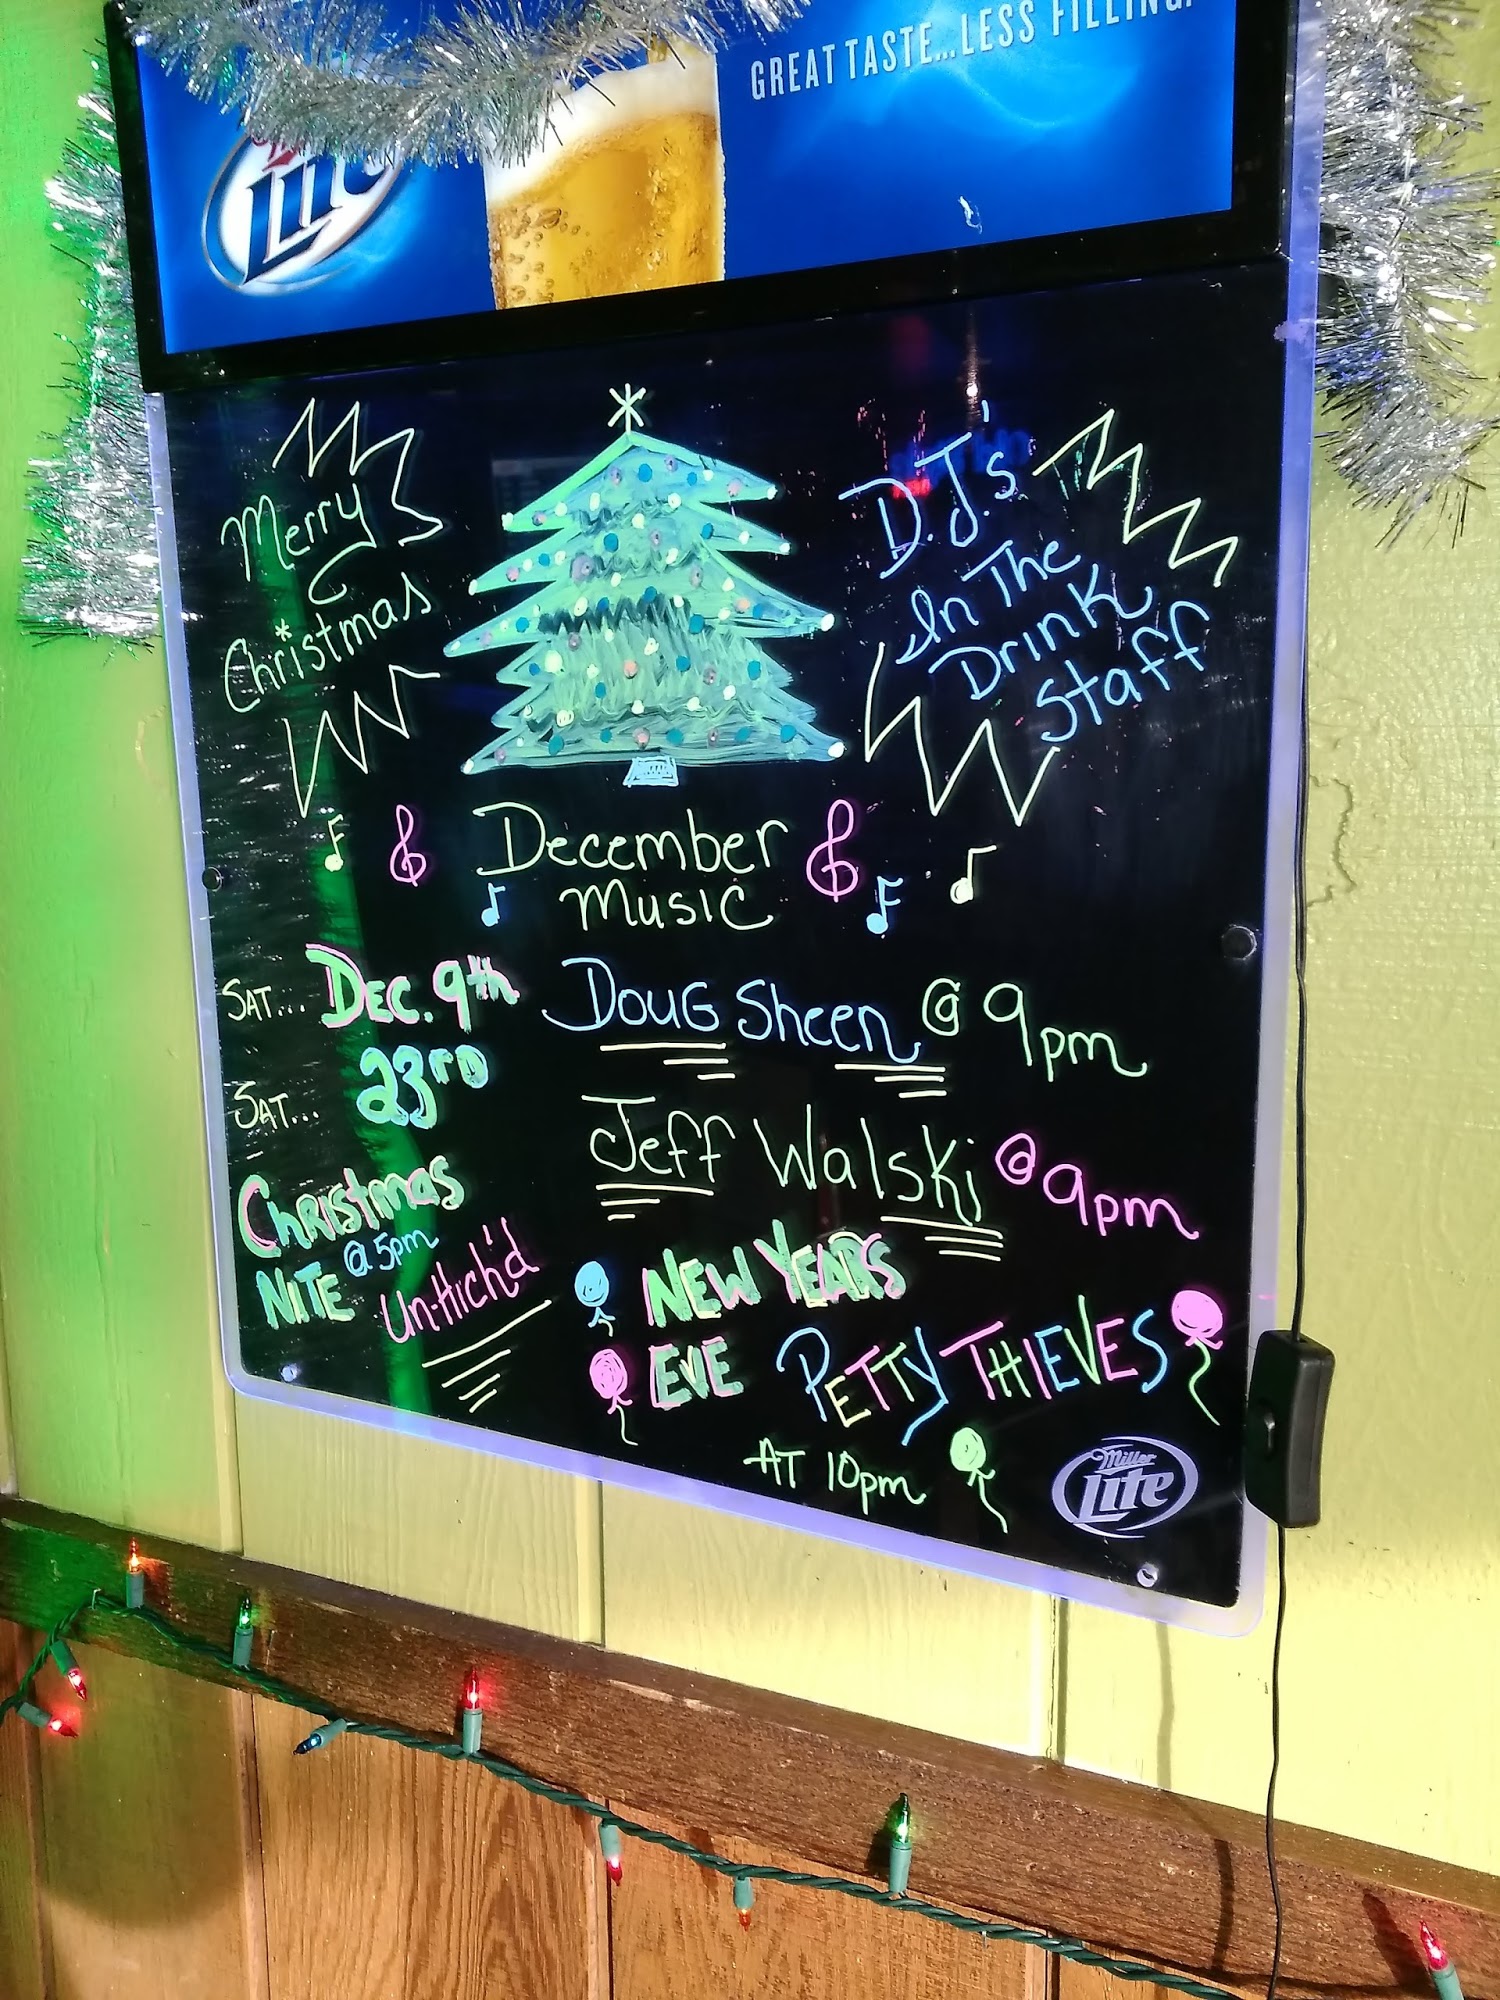 GREAT TASTE...LESS FILLING.
Lite
Merry
Christmas
D.J.'s
In The
Drink
Staff
December
Music
SAT... DEC. 9th DOUG Sheen @ 9pm
SAT... 23RD Jeff Walski @ 9pm
Christmas
NITE @ 5pm
Un-Hich'd
NEW YEARS
EVE PETTY THIEVES
AT 10pm
Miller
Lite